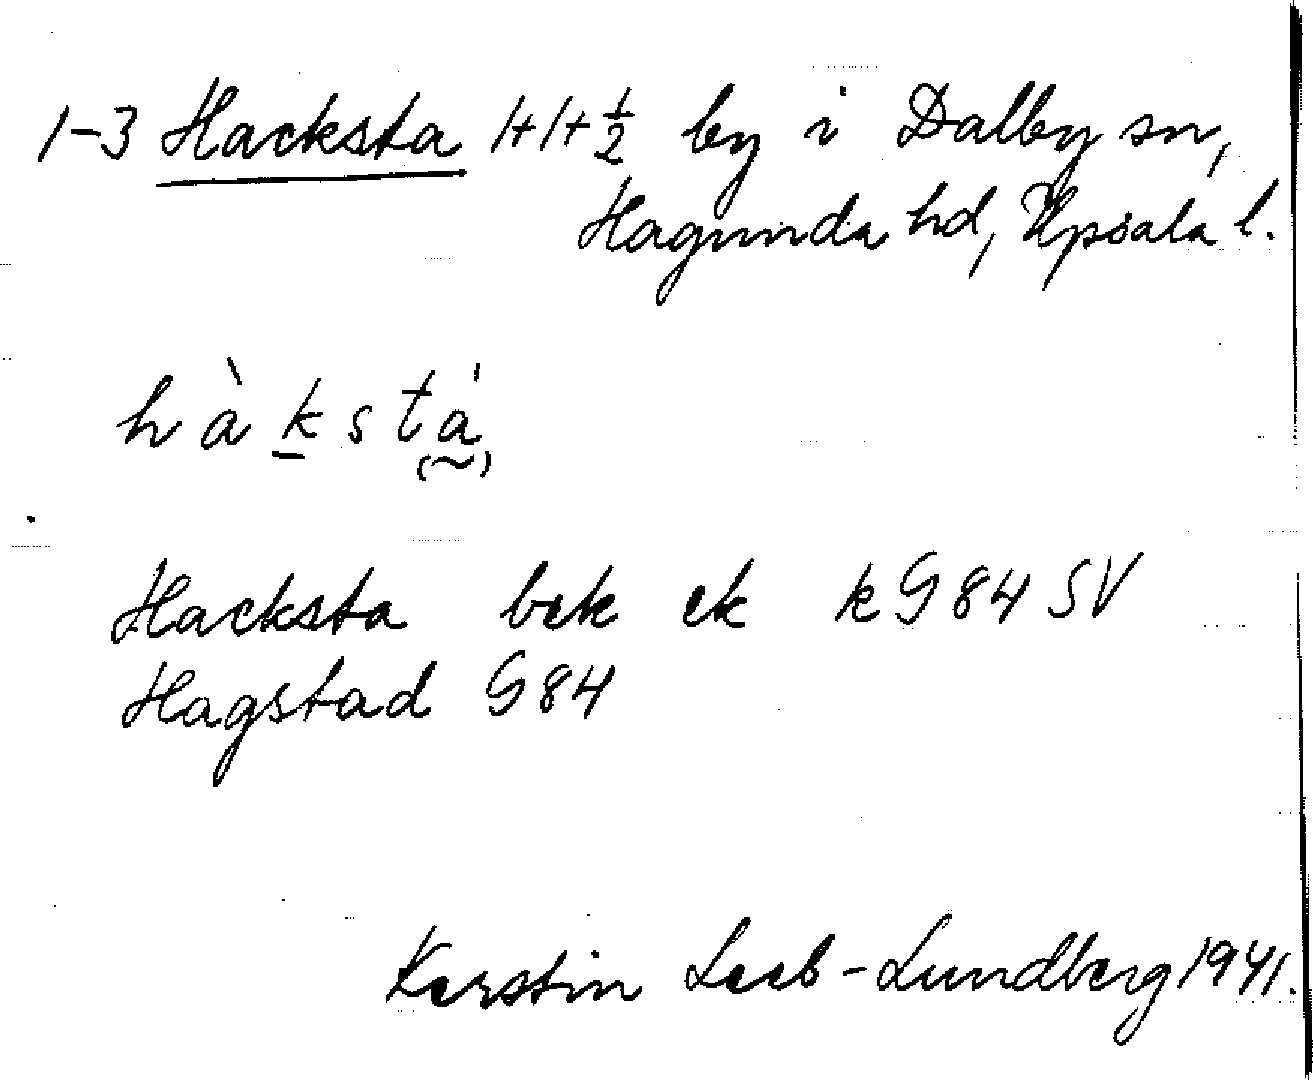 1-3 Hacksta 1+1+½ by i Dalby sn,
Hagunda hd, Upsala l.
hàkstá
Hacksta bek ek k G84 SV
Hagstad G84
Kerstin Leeb-Lundberg 1941.